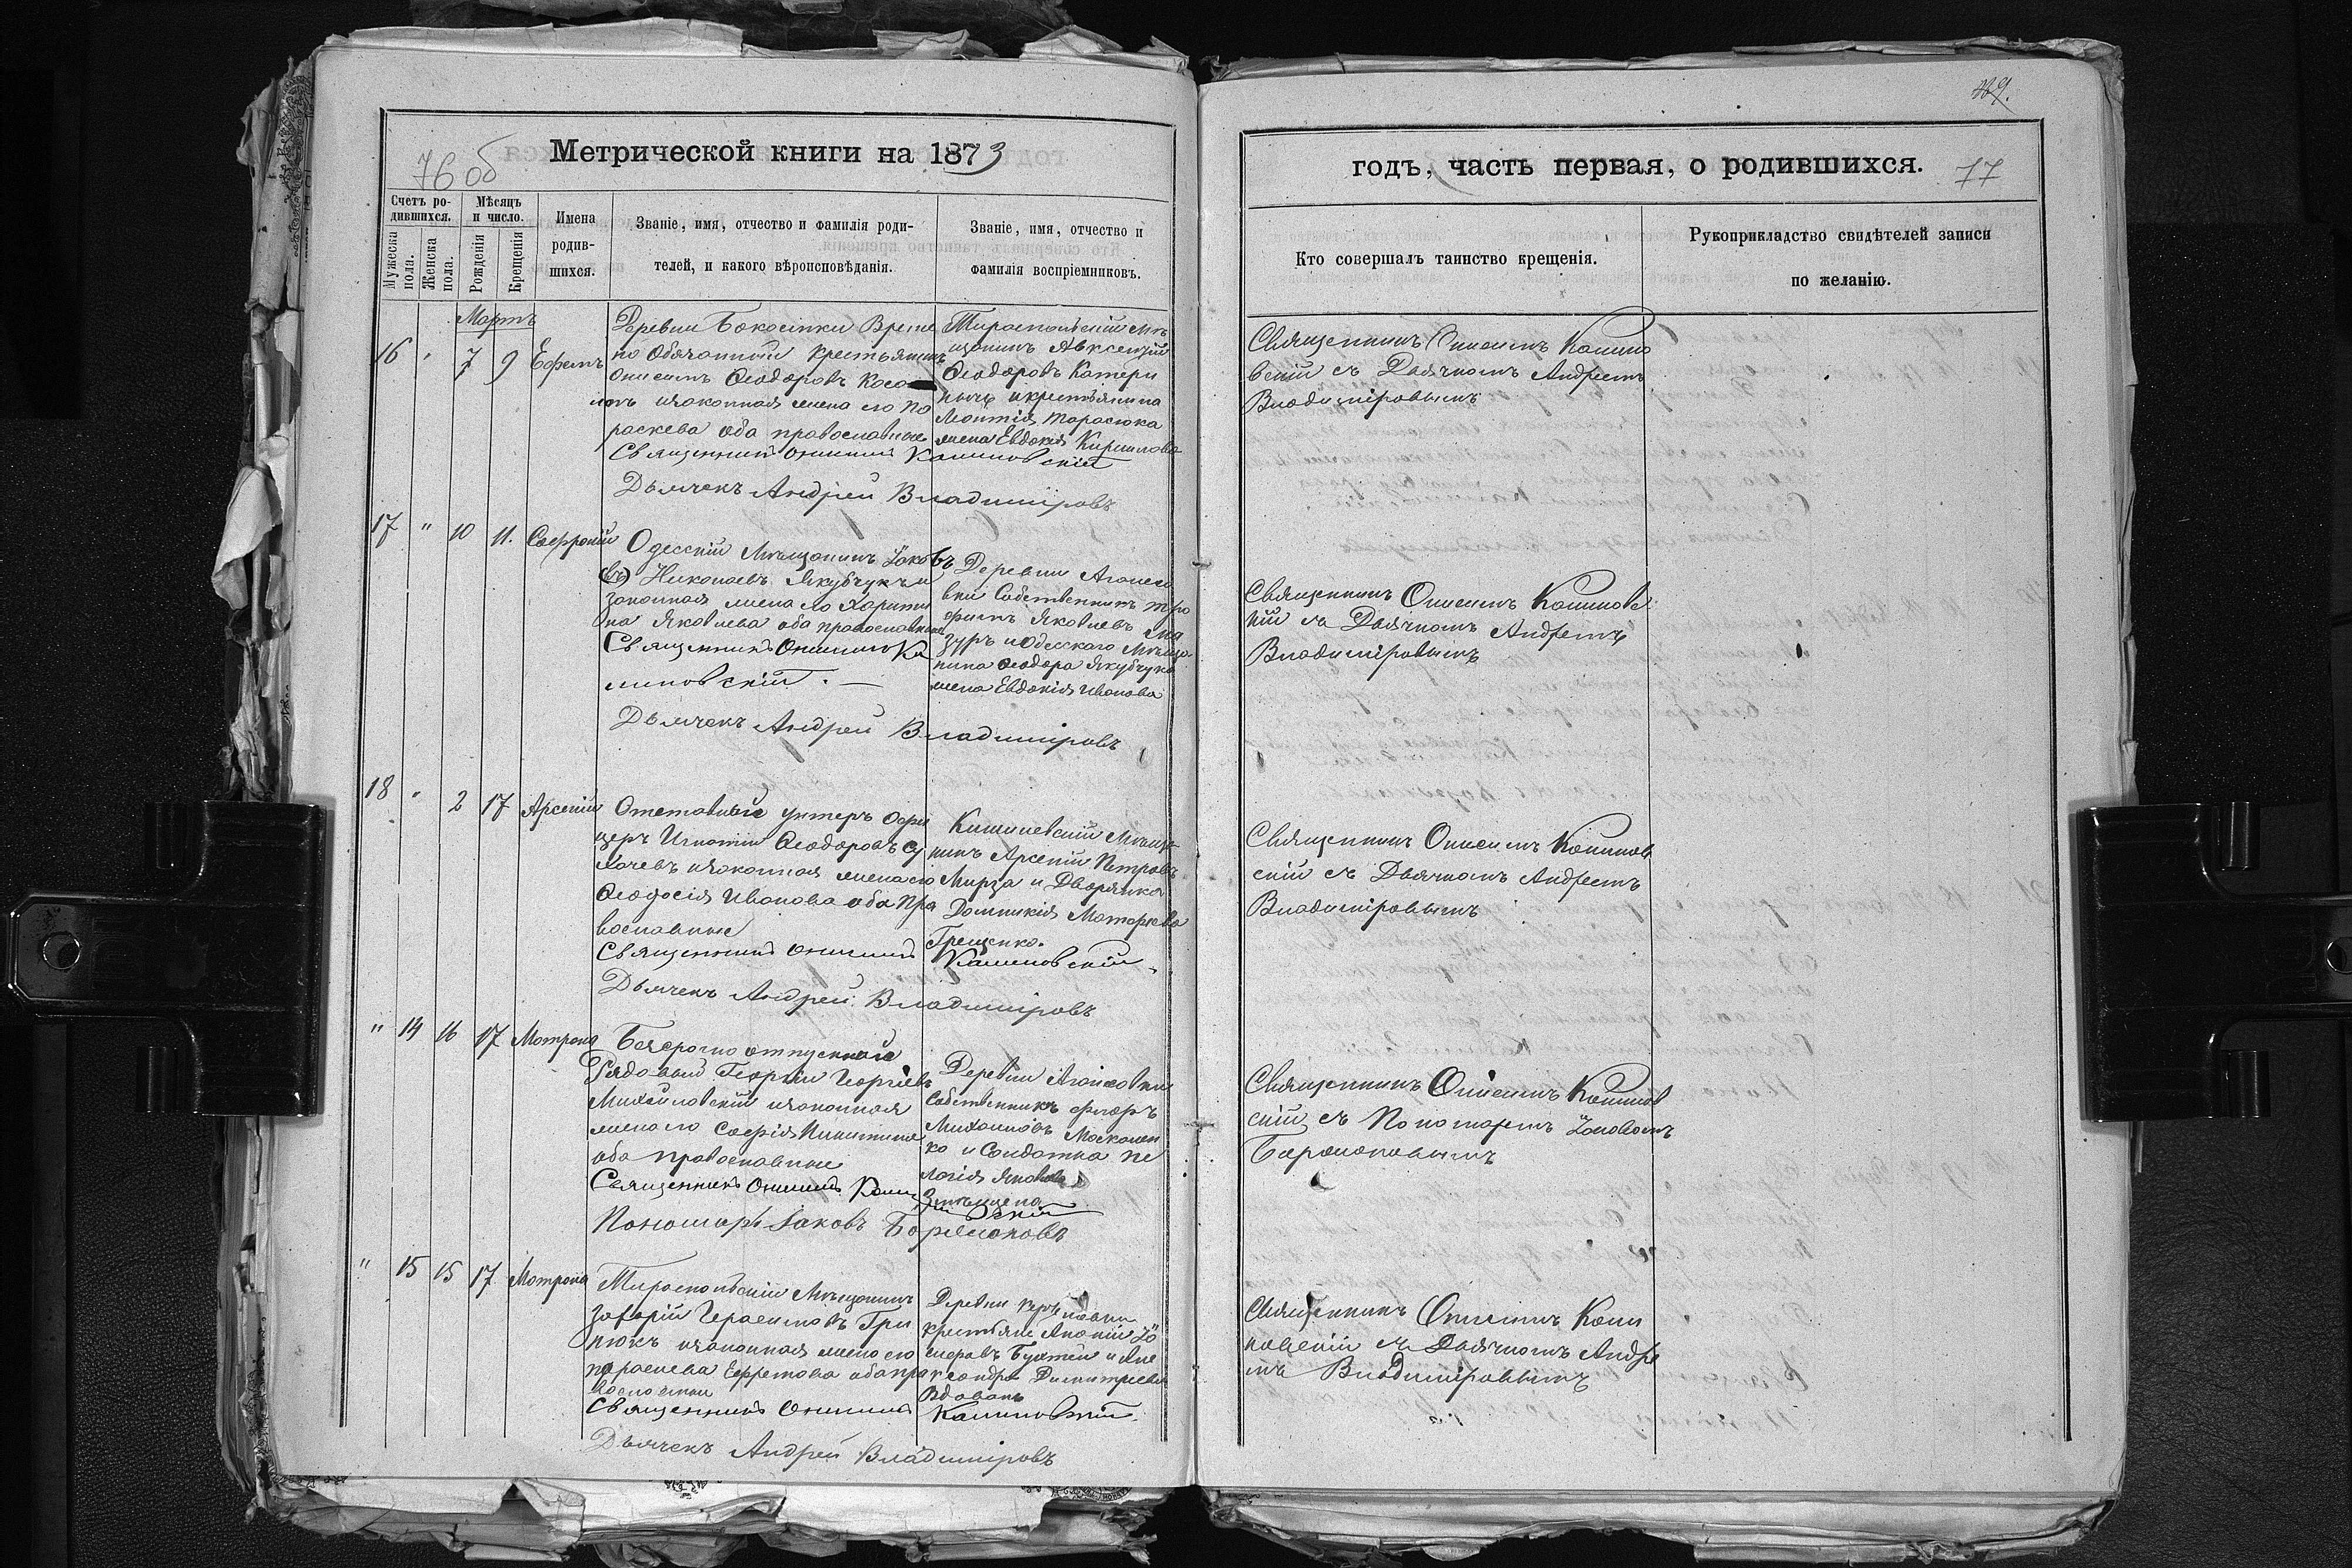 Метрической книги на 1873
76 об
Счетъ ро-
дившихся.
Мужеска
пола.
Женска
пола.
Мѣсяцъ
и число.
Рожденія
Крещенія
Имена
родив-
шихся.
Званіе, имя, отчество и фамилія роди-
телей, и какого вѣроисповѣданія.
Званіе, имя, отчество и
фамилія воспріемниковъ.
Мартъ
16 " 7 9 Ефремъ
Деревни Време
но обязанный крестьянинъ
Онисимъ Ѳеодоровъ
изаконная жена его Па
раскева оба православные
Священникъ Онисимъ Калиновскій
Дьячекъ Андрей Владиміровъ
Тираспольскій мѣ
щанинъ Авксентій
Ѳеодоровъ Катери
ничъ икрестьянина
Леонтія Тарасюка
жена Евдокія Кириллова
17 " 10 11. Софроній
Одесскій Мѣщанинъ Іаковъ
Николаевъ Якубчукъ и
законная жена его Харити
на Яковлева оба православные
Священникъ Онисимъ Ка
линовскій. —
Дьячекъ Андрей Владиміровъ
Деревни
вки Собственникъ Тро
фимъ Яковлевъ Ма
зуръ иОдесскаго Мѣща
нина Ѳеодора Якубчука
жена Евдокія Иванова
18 " 2 17 Арсеній
Отставный унтеръ офи
церъ Игнатій Ѳеодоровъ Су
хачевъ изаконная жена его
Ѳеодосія Иванова оба пра
вославные
Священникъ Онисимъ Калиновскій.
Дьячекъ Андрей Владиміровъ
Кишиневскій Мѣща
нинъ Арсеній Петровъ
Мирза и Дворянка
Домникія
Грещенко.
" 14 16 17 Матрона
Безсрочно отпускной
Рядовый Георгій Георгіевъ
Михайловскій изаконная
жена его Софія Никитина
оба православные
Священникъ Онисимъ Калиновскій
Пономарь Іаковъ
Деревни
Собственникъ Флоръ
Михаиловъ Москален
ко и Солдатка Пе
лагія Яковлева
" 15 15 17 Матрона
Тираспольскій Мѣщанинъ
Захарій Герасимовъ Гри
нюкъ изаконная жена его
Параскева Ефремова оба пра
вославные
Священникъ Онисимъ Калиновскій.
Дьячекъ Андрей Владиміровъ
Деревни
крестьяне
и Але
ксандра Димитріева
годъ, часть первая, о родившихся.
77
Кто совершалъ таинство крещенія.
Рукоприкладство свидѣтелей записи
по желанію.
Священникъ Онисимъ Калино
вскій съ Дьячкомъ Андреемъ
Владиміровымъ
Священникъ Онисимъ Калиновс
кій съ Дьячкомъ Андреемъ
Владиміровымъ
Священникъ Онисимъ Калинов
скій съ Дьячкомъ Андреемъ
Владиміровымъ
Священникъ Онисимъ Калинов
скій съ Пономаремъ Іаковомъ
Священникъ Онисимъ Кали
новскій съ Дьячкомъ Андре
емъ Владиміровымъ